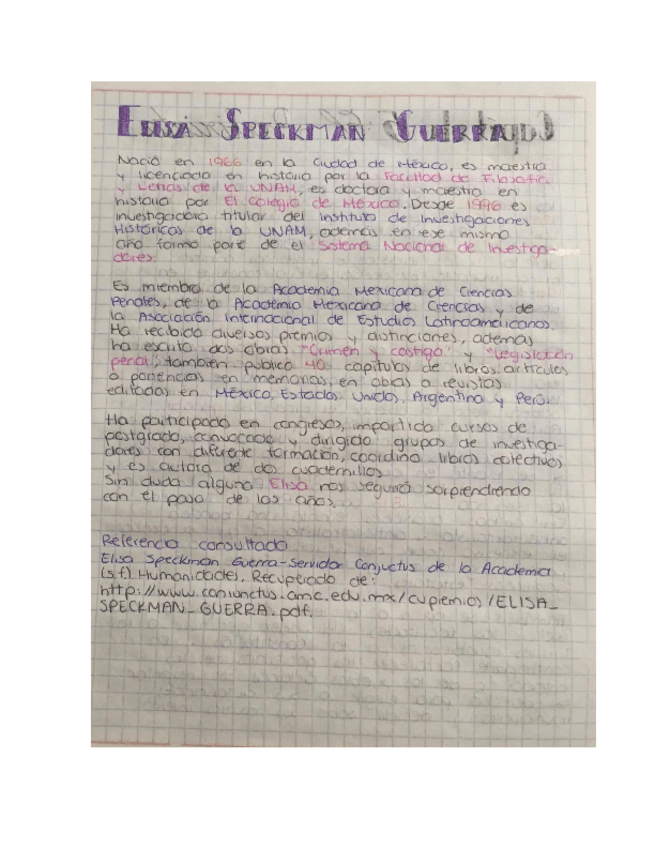 Elisa Speckman Guerra
Nació en 1966 en la Ciudad de México, es maestra
y licenciada en historia por la Facultad de Filosofía
y Letras de la UNAM, es doctora y maestra en
historia por El Colegio de México. Desde 1996 es
investigadora titular del Instituto de Investigaciones
Históricas de la UNAM, además en ese mismo
año formó parte de el Sistema Nacional de Investiga-
dores.
Es miembro de la Academia Mexicana de Ciencias
Penales, de la Academia Mexicana de Ciencias y de
la Asociación Internacional de Estudios Latinoamericanos.
Ha recibido diversos premios y distinciones, además
ha escrito dos obras "Crimen y castigo" y "Legislación
penal", también publicó 40 capítulos de libros, artículos
o ponencias en memorias, en obras o revistas
editadas en México, Estados Unidos, Argentina y Perú.
Ha participado en congreso, impartido cursos de
postgrado, convocado y dirigido grupos de investiga-
dores con diferente formación, coordina libros colectivos
y es autora de dos cuadernillos.
Sin duda alguna Elisa nos seguirá sorprendiendo
con el paso de los años.
Referencia consultada
Elisa Speckman Guerra-Servidor Conjuctus de la Academia
(s.f) Humanidades, Recuperado de:
http://www.coniunctus.amc.edu.mx/cvpremios/ELISA_
SPECKMAN_GUERRA.pdf.